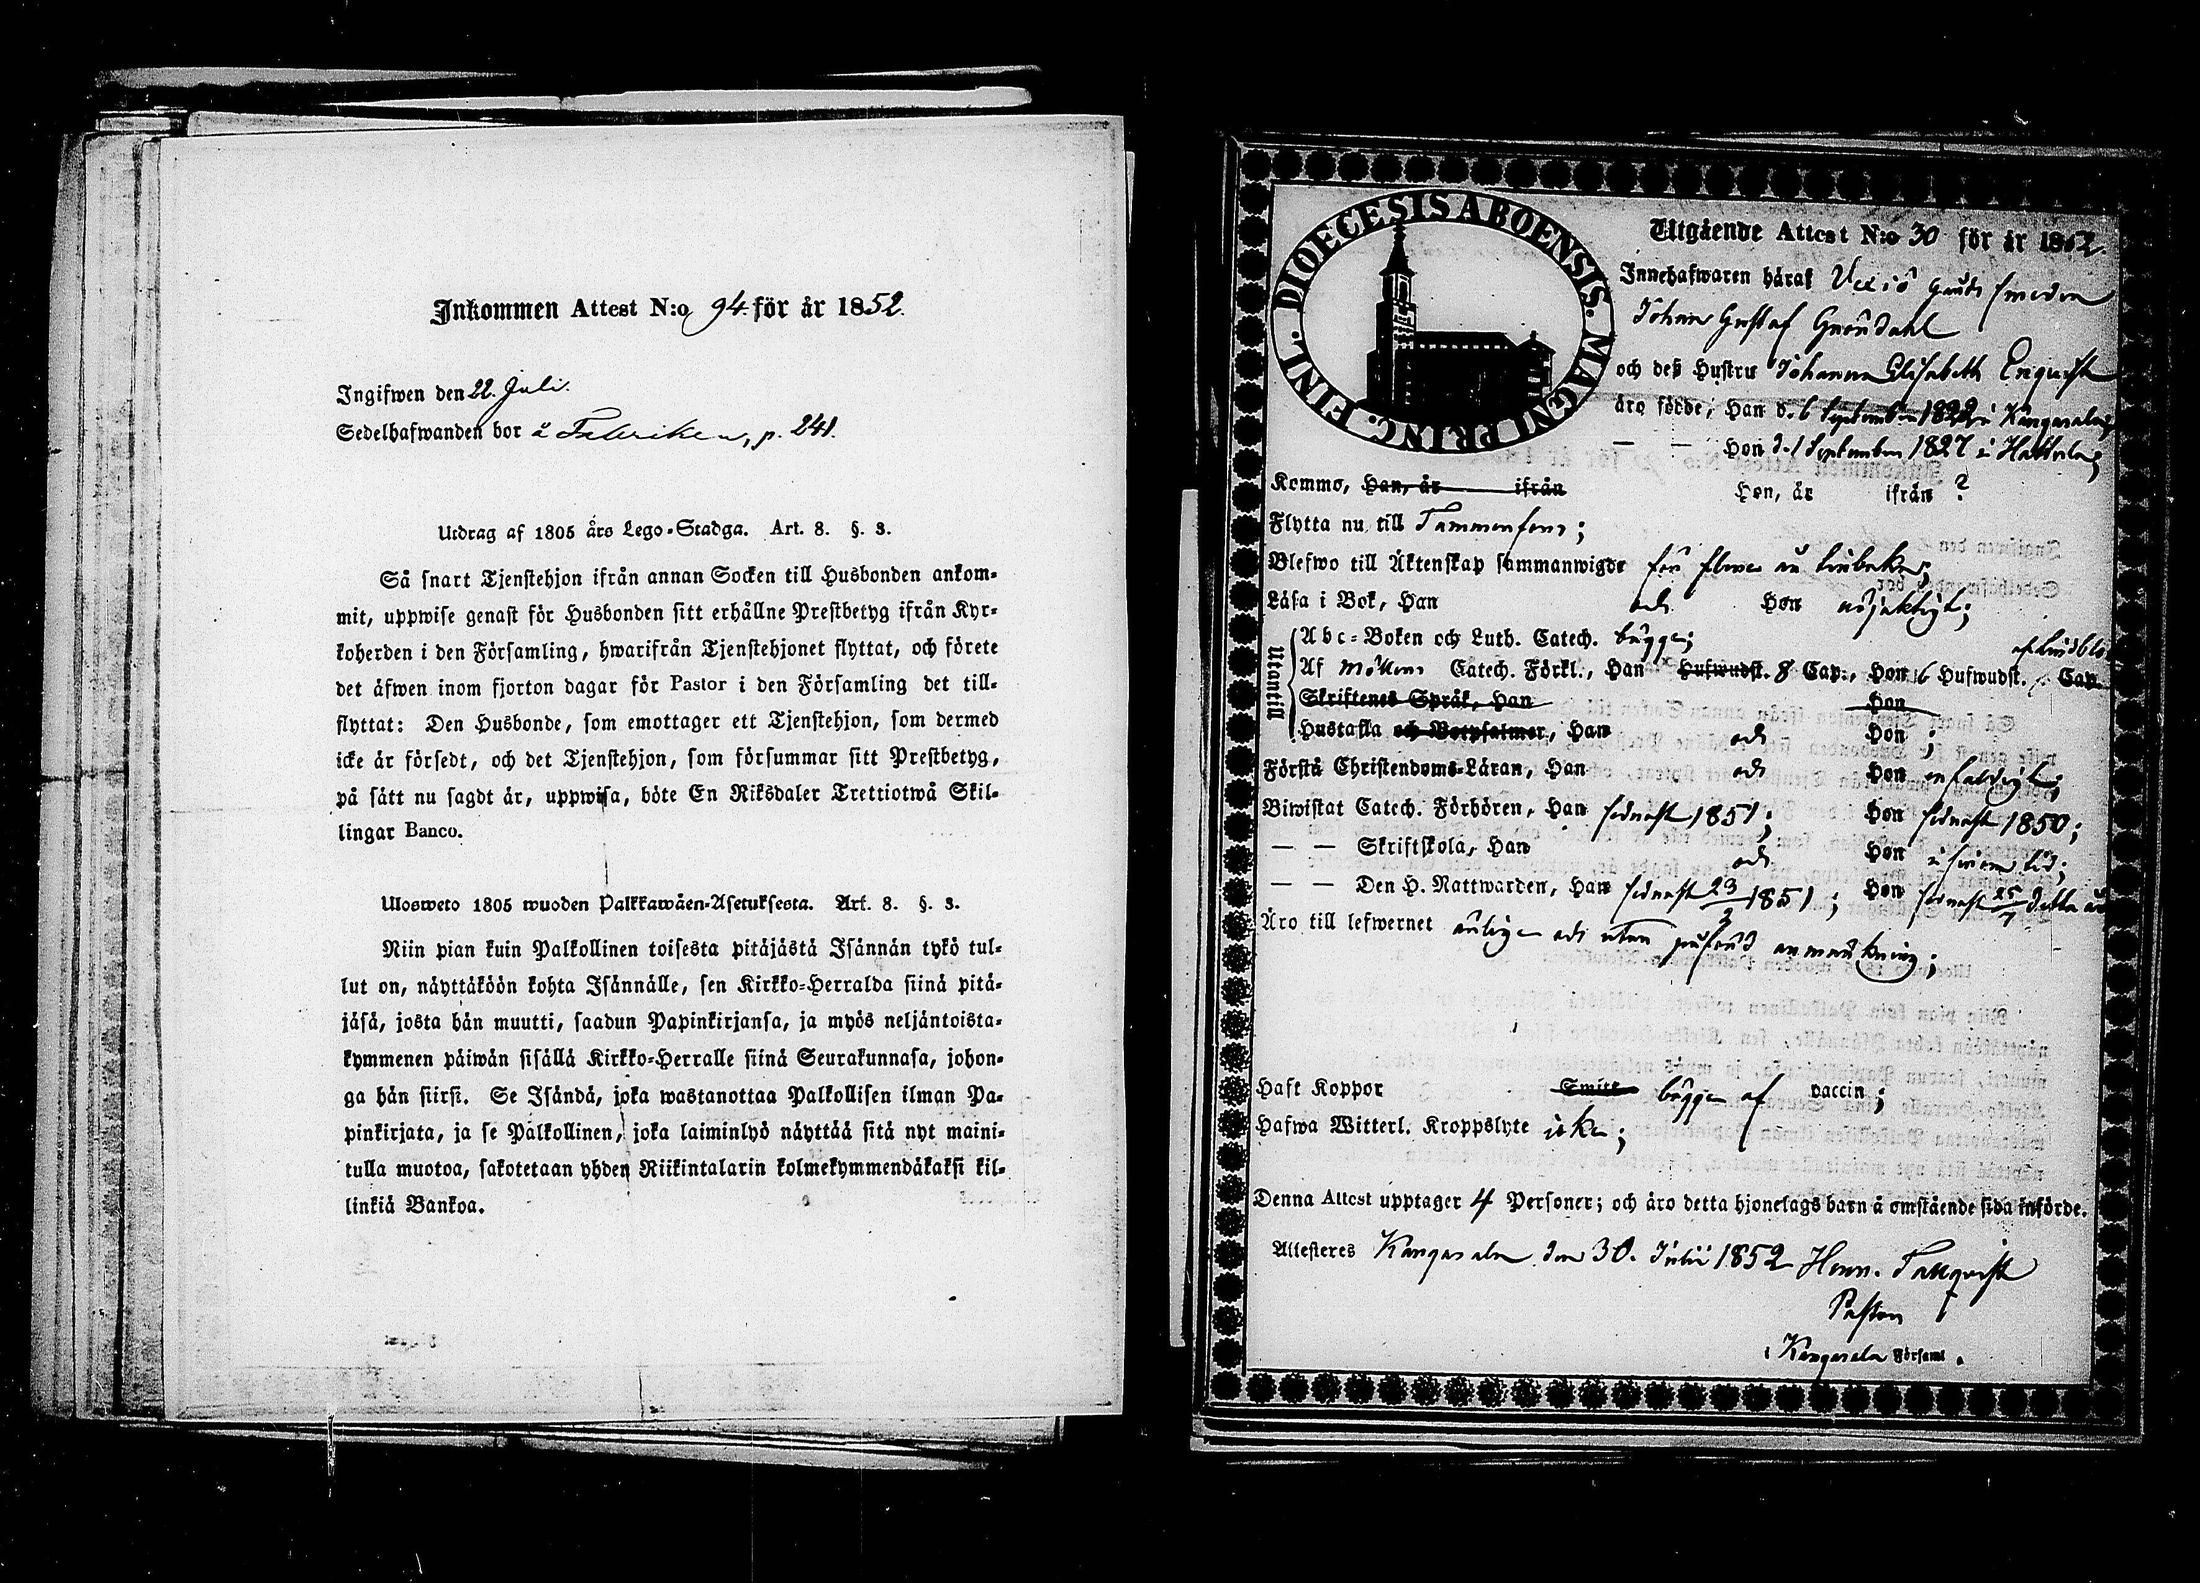 Inkommen Attest N:o 94 för år 1852.
Ingifwen den 22. Juli.
Sedelhafwanden bor å Fabriken, p. 241.
Utdrag af 1805 års Lego-Stadga. Art. 8. §. 3.
Så snart Tjenstehjon ifrån annan Socken till Husbonden ankom-
mit, uppwise genast för Husbonden sitt erhållne Prestbetyg ifrån Kyr-
koherden i den Församling, hwarifrån Tjenstehjonet flyttat, och förete
det äfwen inom fjorton dagar för Pastor i den Församling det till-
flyttat: Den Husbonde, som emottager ett Tjenstehjon, som dermed
icke är försedt, och det Tjenstehjon, som försummar sitt Prestbetyg,
på sätt nu sagdt är, uppwisa, böte En Riksdaler Trettiotwå Skil-
lingar Banco.
Ulosweto 1805 wuoden Palkkawäen-Asetuksesta. Art. 8. §. 3.
Niin pian kuin Palkollinen toisesta pitäjästä Isännän tykö tul-
lut on, näyttäköön kohta Isännälle, sen Kirkko-Herralda siinä pitä-
jäsä, josta hän muutti, saadun Papinkirjansa, ja myös neljäntoista-
kymmenen päiwän sisällä Kirkko-Herralle siinä Seurakunnasa, johon-
ga hän siirsi. Se Isändä, joka wastanottaa Palkollisen ilman Pa-
pinkirjata, ja se Palkollinen, joka laiminlyö näyttää sitä nyt maini-
tulla muotoa, sakotetaan yhden Riikintalarin kolmekymmendäkaksi kil-
linkiä Bankoa.
DIOECESIS ABOENSIS. MAGNI PRINC. FINL.
Utgående Attest N:o 30 för år 1852.
Innehafwaren häraf smeden
Johan Gustaf Gröndahl
och deß Hustru Johanna Elisabeth Enqvist
äro födde, Han d. 6 September 1822 i Kangasala;
— — Hon d. 1 September 1827 i Hattula;
Kommo, Han, år ifrån Hon, år ifrån ?
Flytta nu till Tammerfors;
Blefwo till Äktenskap sammanwigde för flere år tillbaka;
Läsa i Bok, Han och Hon nöjaktigt;
Utantill
Abc-Boken och Luth. Catech. bägge;
Af Möllers Catech. Förkl., Han Hufwudst. 8 Cap., Hon 6 Hufwudst. Cap.
Skriftenes Språk, Han Hon
Hustafla och Botpsalmer, Han och Hon ;
Förstå Christendoms-Läran, Han och Hon enfaldigt;
Biwistat Catech. Förhören, Han sednast 1851; Hon sednast 1850;
— — Skriftskola, Han och Hon i sinom tid;
— — Den H. Nattwarden, Han sednast 23/2 1851; Hon sednast 25/7 detta år
Äro till lefwernet ärlige och utan anmärkning;
Haft Koppor Smitt bägge af vaccin;
Hafwa Witterl. Kroppslyte icke;
Denna Attest upptager 4 Personer; och äro detta hjonelags barn å omstående sida införde.
Attesteres Kangasala den 30. Julii 1852 Henr. Tallqvist
Pastor
i Kangasala Församl.